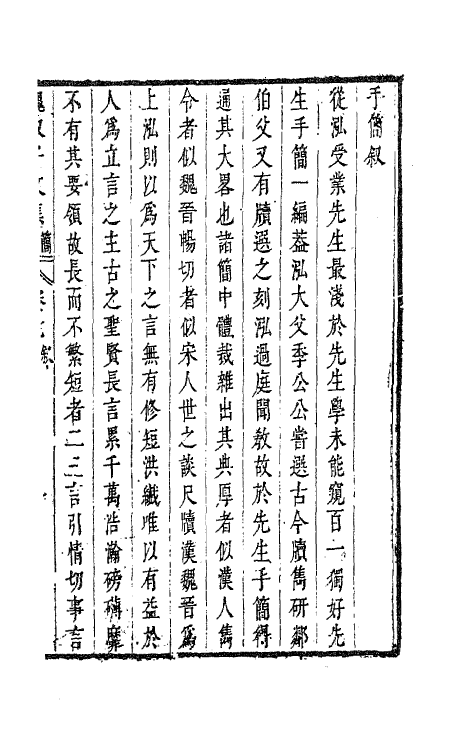 手簡叙
從泓受業先生最淺於先生學未能窺百一獨好先
生手簡一編葢泓大父季公公嘗選古今牘雋研鄰
伯父又有牘選之刻泓過庭聞敎故於先生手簡得
通其大畧也諸簡中體裁雜出其典厚者似漢人雋
令者似魏晉暢切者似宋人世之談尺牘漢魏晉爲
上泓則以爲天下之言無有修短洪纖唯以有益於
人爲立言之主古之聖賢長言累千萬浩瀚磅礴靡
不有其要領故長而不繁短者二三言引情切事言
魏叔子文集 簡 卷之 叙